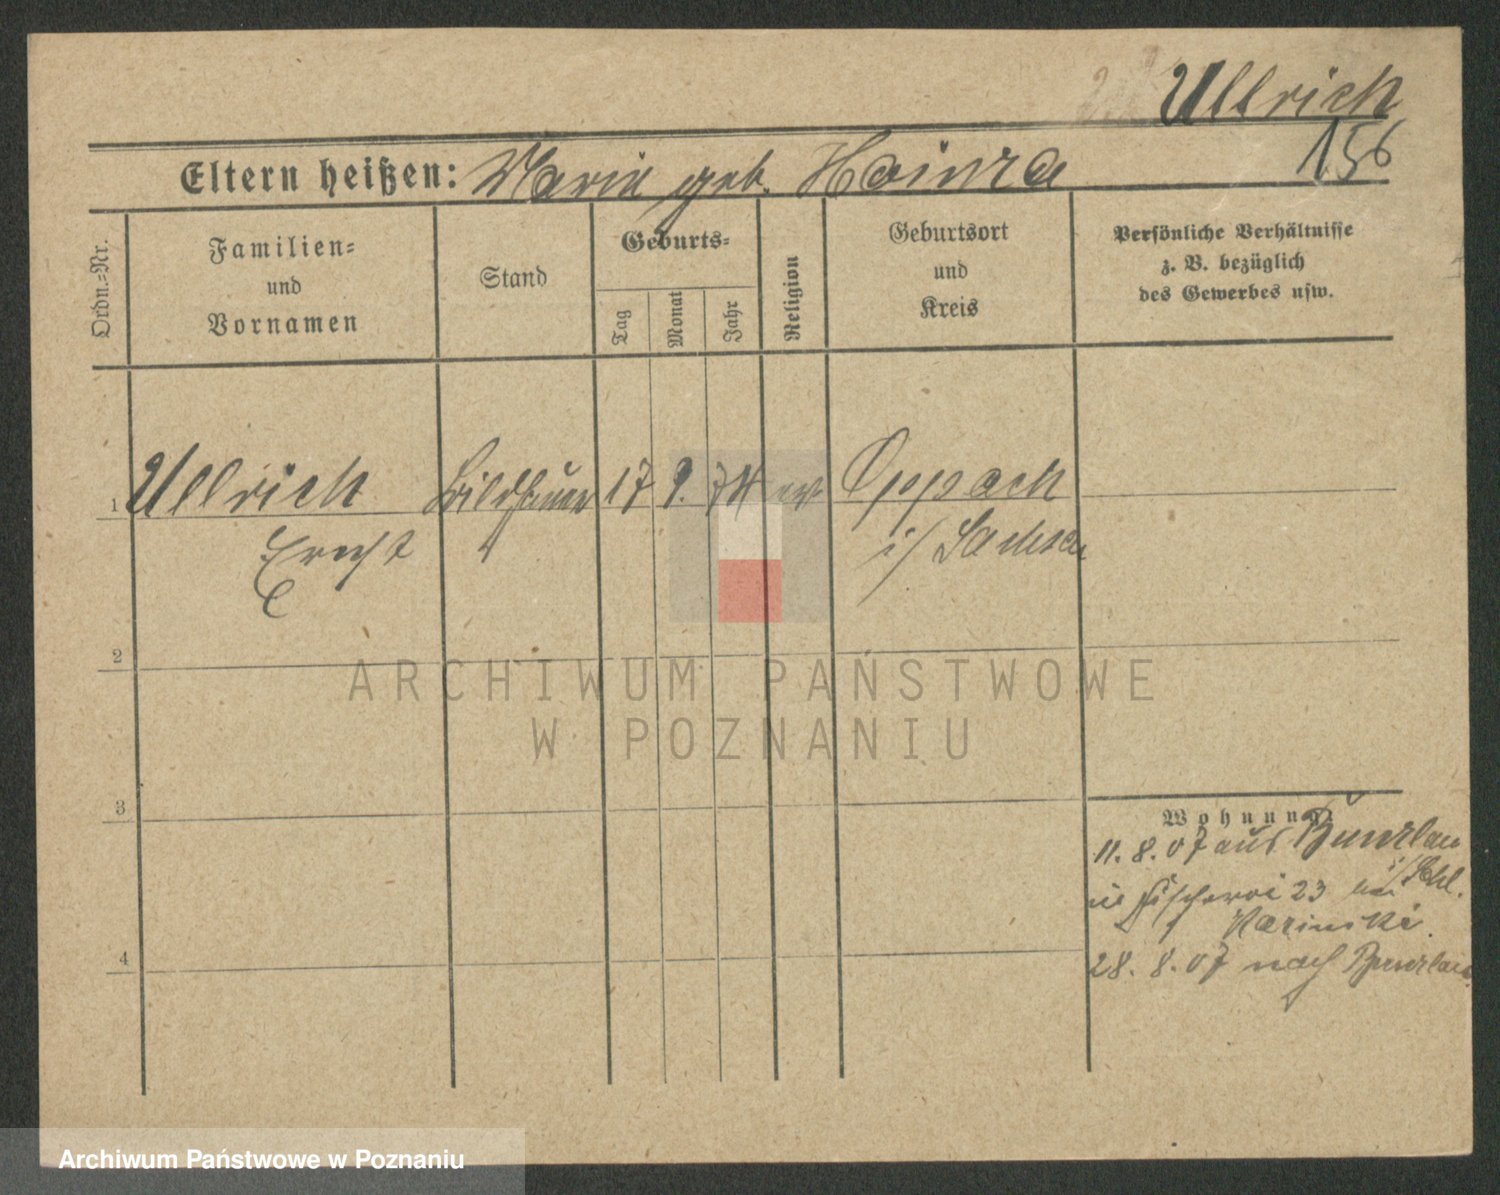 Ullrich
156
Eltern heißen: Marie geb. Hainza
Ordn.-Nr.
Familien-
und
Vornamen
Stand
Geburts-
Tag
Monat
Jahr
Religion
Geburtsort
und
Kreis
Persönliche Verhältnisse
z. B. bezüglich
des Gewerbes usw.
1
Ullrich
Ernst
Bildhauer
17
9.
74
ev.
Oppach
i/ Sachsen
2
3
4
Wohnung:
11. 8. 07 aus Bunzlau
i/ Schl.
in Fischerei 23 bei
28. 8. 07 nach Bunzlau
ARCHIWUM PAŃSTWOWE
W POZNANIU
Archiwum Państwowe w Poznaniu